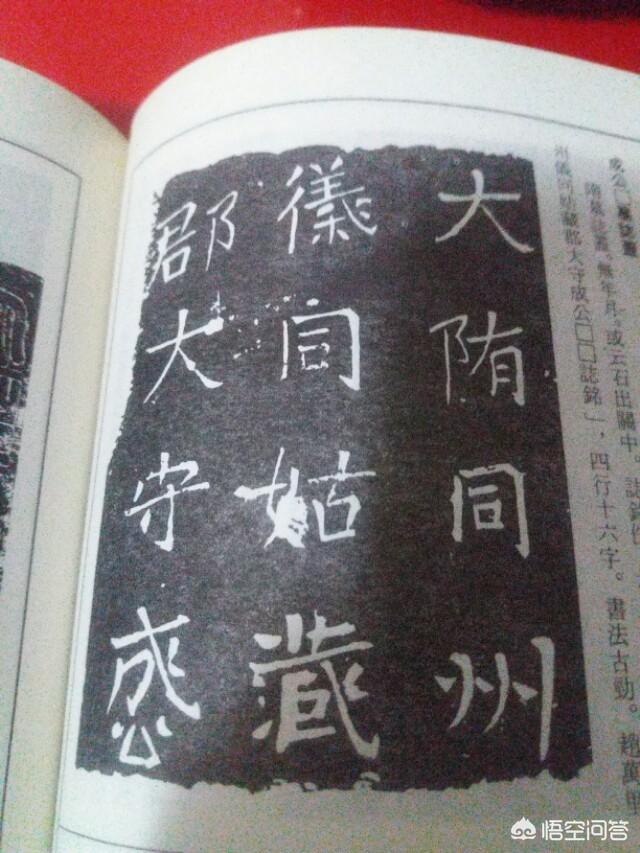 成公□墓誌蓋
隋墓誌蓋。無年月。或云石出關中。誌銘
州儀同姑臧郡太守成公□□誌銘」，四行十六字。書法古勁。趙萬里
大陏同州
儀同姑藏
郡大守成公
悟空问答